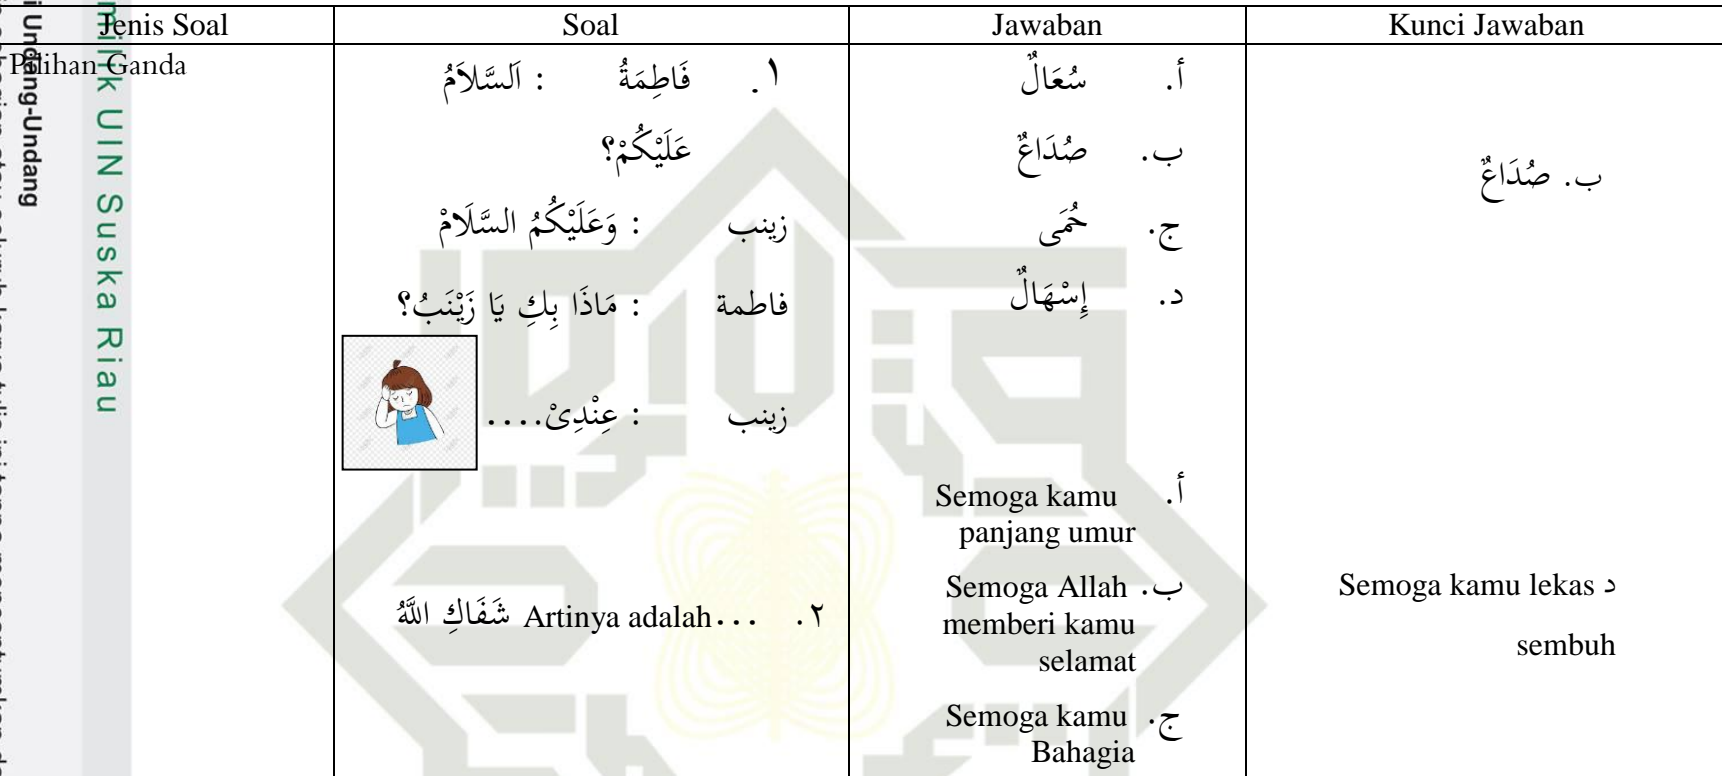 Jenis Soal
Soal
Jawaban
Kunci Jawaban
Pilihan Ganda
١. فَاطِمَةُ : اَلسَّلاَمُ
عَلَيْكُمْ؟
زينب : وَعَلَيْكُمُ السَّلَامْ
فاطمة : مَاذَا بِكِ يَا زَيْنَبُ؟
زينب : عِنْدِىْ....
٢. ... شَفَاكِ اللَّهُ Artinya adalah...
أ. سُعَالٌ
ب. صُدَاعٌ
ج. حُمَى
د. إِسْهَالٌ
أ. Semoga kamu
panjang umur
ب. Semoga Allah
memberi kamu
selamat
ج. Semoga kamu
Bahagia
ب. صُدَاعٌ
د Semoga kamu lekas
sembuh
milik UIN Suska Riau
i Undang-Undang